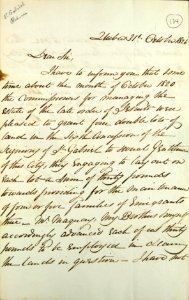 134
Quebec 31st October 18
Dear Sir,
I have to inform you that some
time about the month of October 1820
the Commissioners for managing the
Estate of the late order of Jesuits were
pleased to grant five double lots of
land in the Concession of the
Seigniory of St Gabriel to
of the City, they engaging to lay out on
each lot a sum of thirty pounds
towards providing for the maintenance
of four or five families of Emigrants
then — Mr Maguire, my Brothers & myself
accordingly advanced each of us thirty
pounds to be employed in clearing
the lands in question — I have not